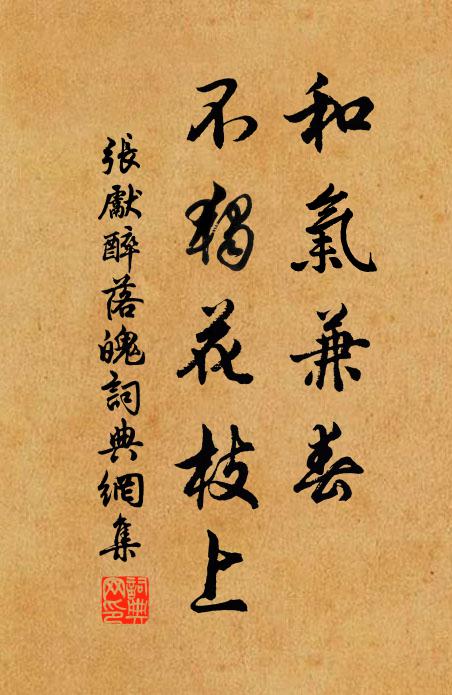 和氣兼春
不獨花枝上
張獻醉落魄詞典網集
詞典
网印